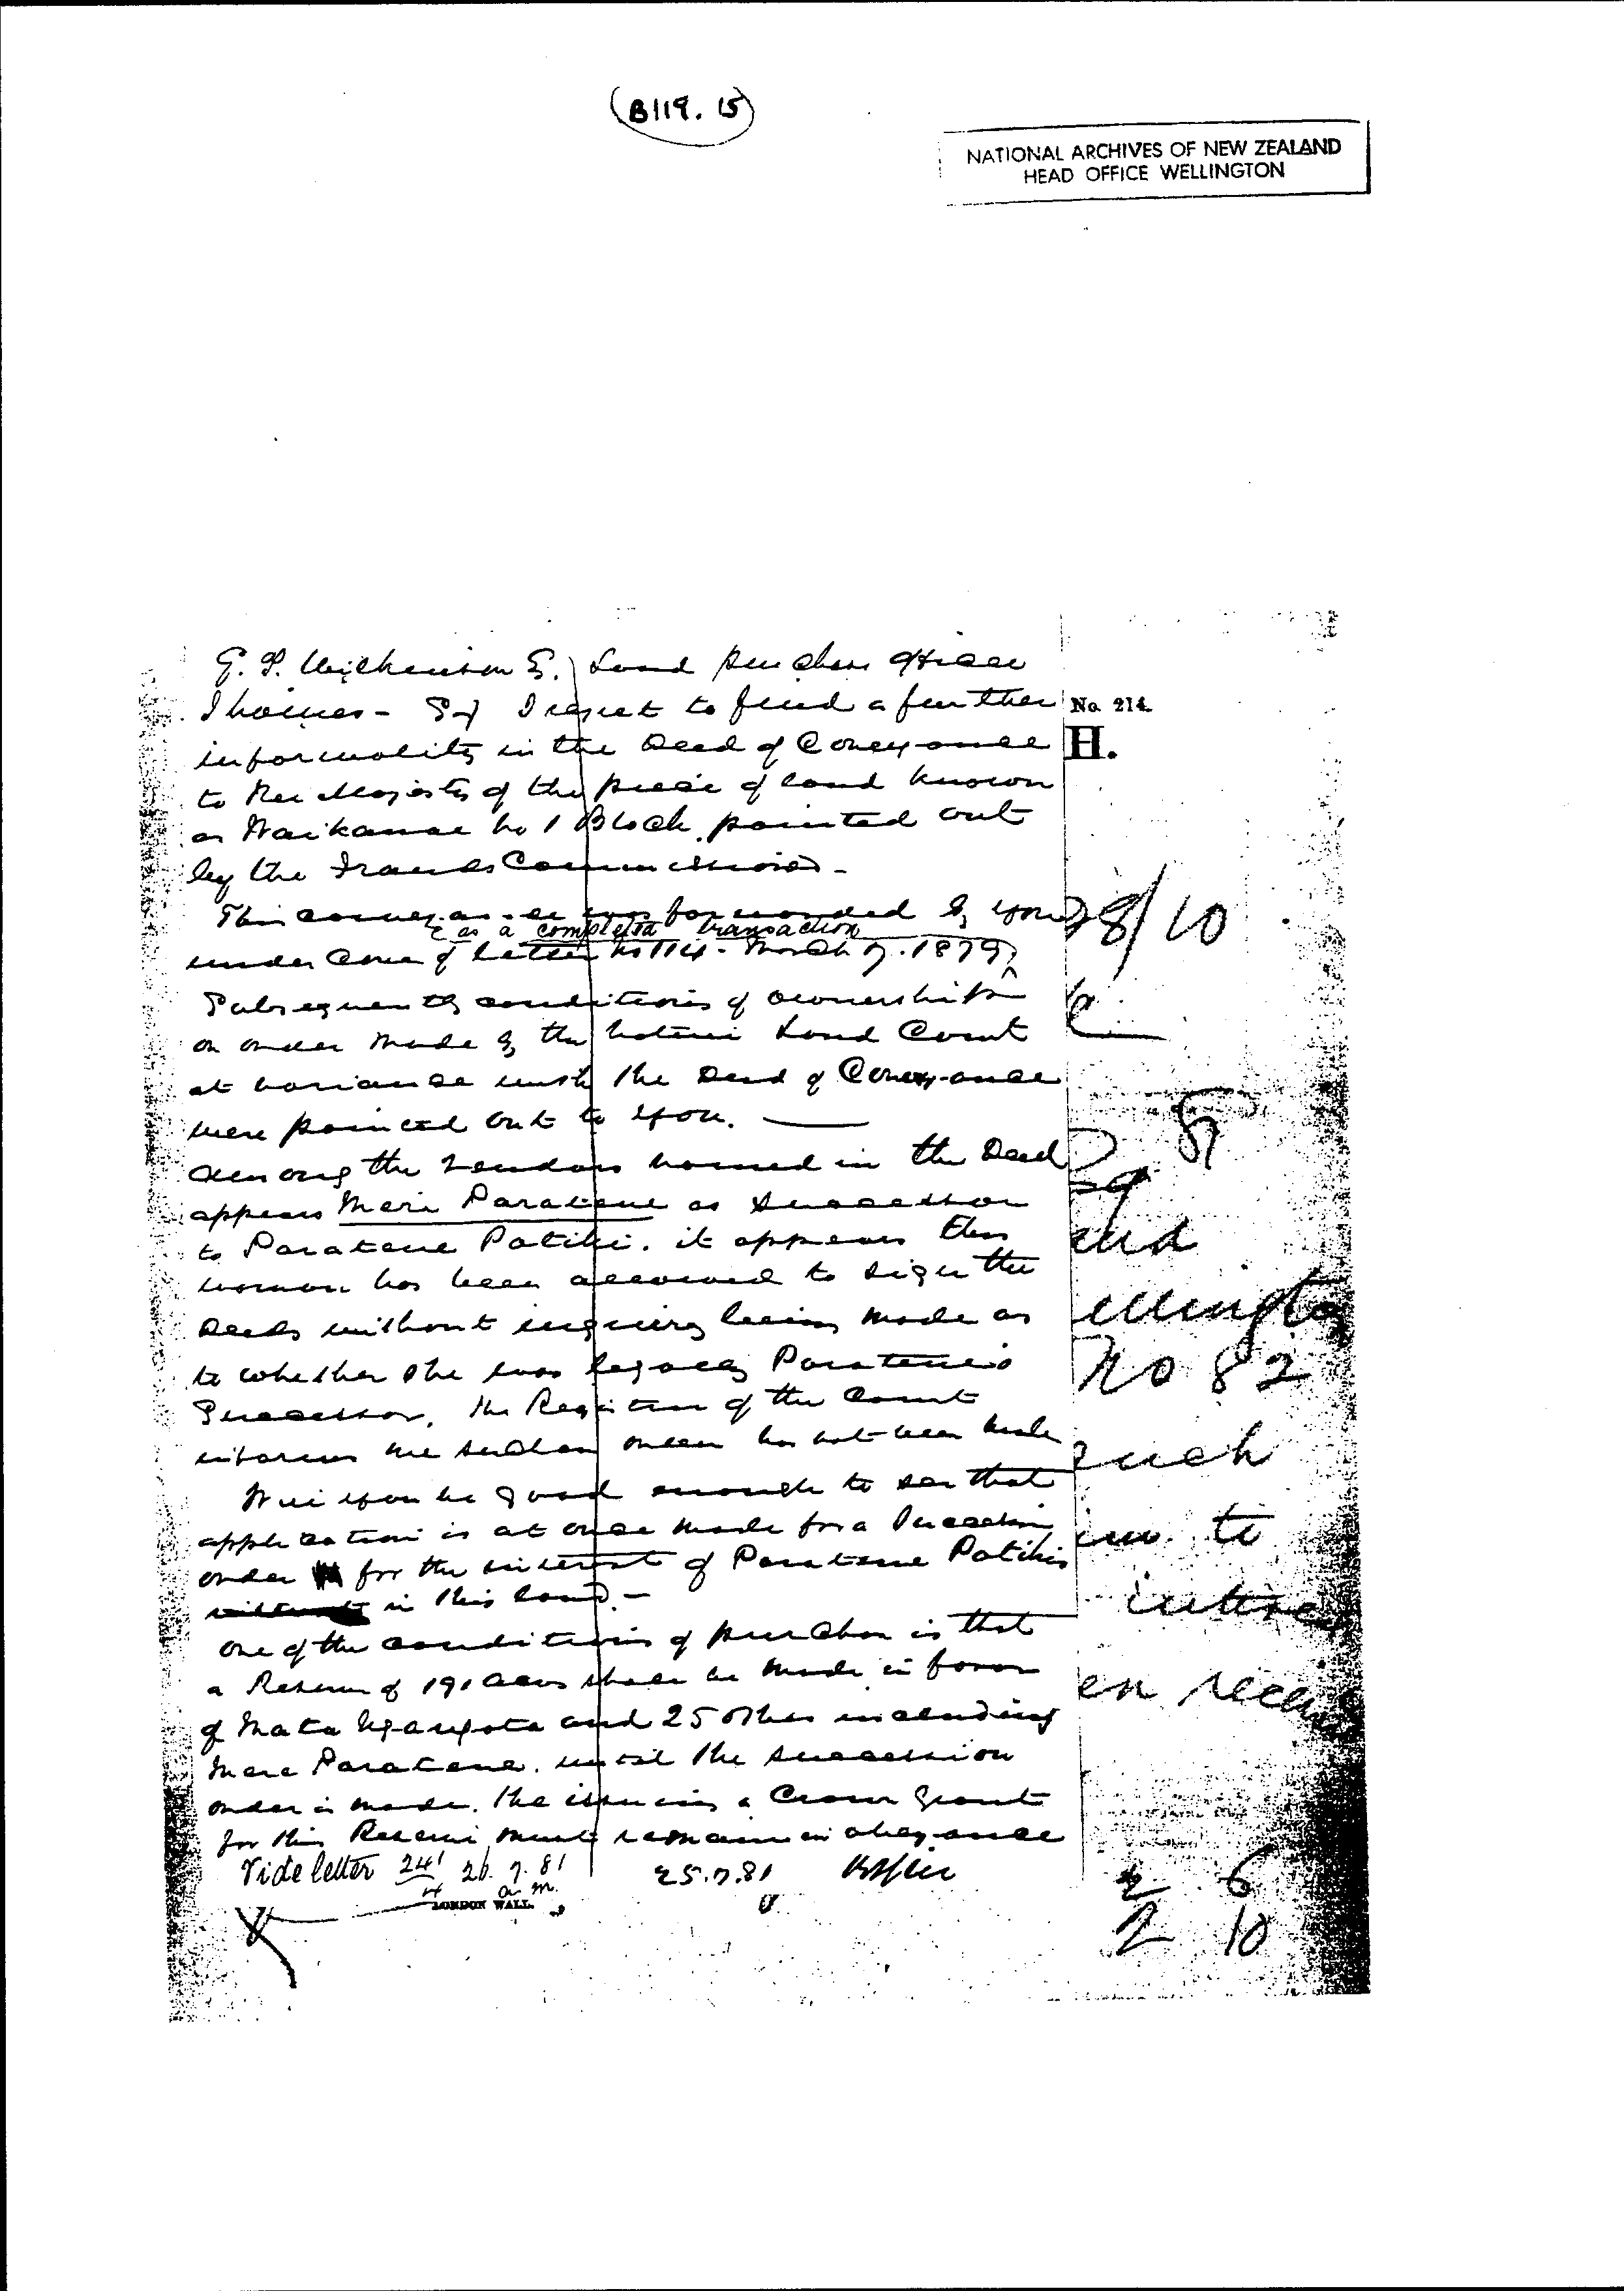 (B119. 15)
NATIONAL ARCHIVES OF NEW ZEALAND
HEAD OFFICE WELLINGTON
G. T. Wilkinson E. Land Purchase Officer
Thames - I regret to find a further
informality in the Deed of Conveyance
to Her Majesty of the piece of land known
as Waikanae No 1 Block pointed out
by the Frauds Commissioner -
This conveyance was forwarded by you
as a completed transaction
under cover of letter No 114 - March 7. 1879
Subsequently conditions of ownership
on order made by the Native Land Court
at variance with the Deed of Conveyance
were pointed out to you.
Among the Vendors named in the Deed
appears Mere Paratene as Successor
to Paratene Patiki. it appears this
woman has been allowed to sign the
Deeds without inquiry being made as
to whether she was legally Paratene's
Successor, the Registrar of the Court
informs me such an order has not been made
Will you be good enough to see that
application is at once made for a Succession
order for the interest of Paratene Patiki's
in this land. -
One of the conditions of purchase is that
a Reserve of 191 acres shall be made in favor
of Mata and 25 others including
Mere Paratene. until the succession
order is made. the issuing a Crown Grant
for this Reserve must remain in abeyance
Vide letter 241/4 26. 7. 81
a m.
25.7.81
LONDON WALL.
No. 214.
H.
28/10
and
No 82
such
to
2 6
2 10